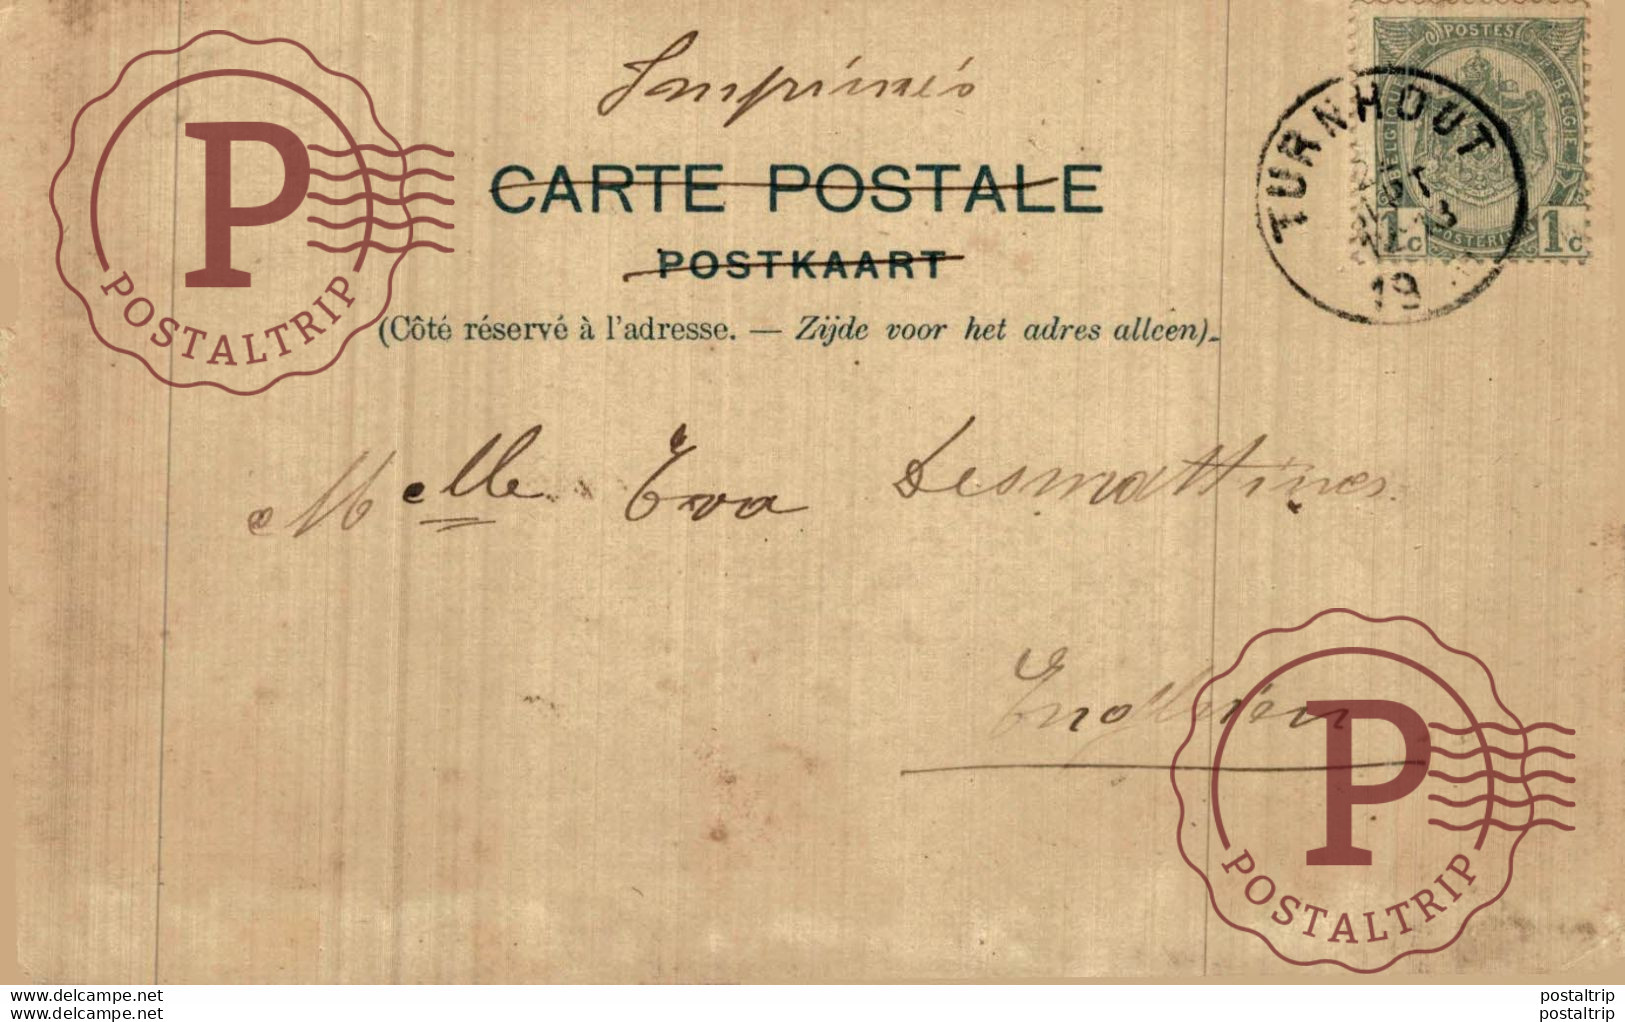 Imprimés
CARTE POSTALE
POSTKAART
(Côté réservé à l'adresse. — Zijde voor het adres alleen).
POSTES
BELGIQUE
BELGIE
POSTERIJEN
1c 1c
TURNHOUT
SEPT
19
Melle Eva Desmattines
Enghien
P
POSTALTRIP
P
POSTALTRIP
www.delcampe.net postaltrip
www.delcampe.net postaltrip